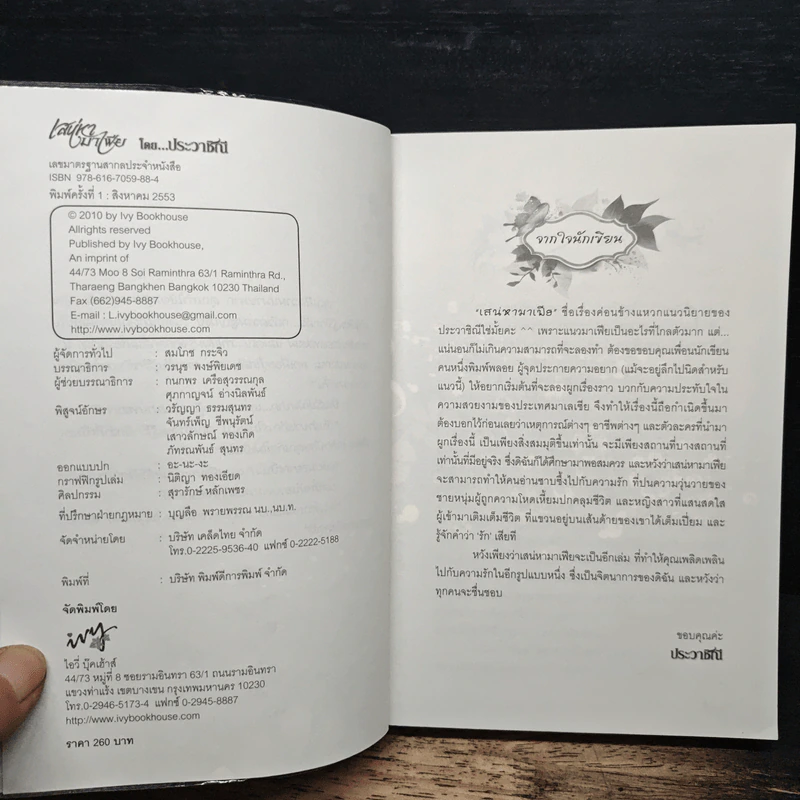 เสน่หา
มาเฟีย โดย...ประวาชิณี
เลขมาตรฐานสากลประจำหนังสือ
ISBN 978-616-7059-88-4
พิมพ์ครั้งที่ 1 : สิงหาคม 2553
© 2010 by Ivy Bookhouse
Allrights reserved
Published by Ivy Bookhouse,
An imprint of
44/73 Moo 8 Soi Raminthra 63/1 Raminthra Rd.,
Tharaeng Bangkhen Bangkok 10230 Thailand
Fax (662)945-8887
E-mail : L.ivybookhouse@gmail.com
http://www.ivybookhouse.com
ผู้จัดการทั่วไป : สมโภช กระจิว
บรรณาธิการ : วรนุช พงษ์พิยเดช
ผู้ช่วยบรรณาธิการ : กนกพร เครือสุวรรณกุล
ศุภกาญจน์ อ่างนิลพันธ์
พิสูจน์อักษร : วรัญญา ธรรมสุนทร
จันทร์เพ็ญ ชีพนุรัตน์
เสาวลักษณ์ ทองเกิด
ภัทรณพันธ์ สุนทร
ออกแบบปก : อะ-นะ-งะ
กราฟฟิกรูปเล่ม : นิติญา ทองเอียด
ศิลปกรรม : สุรารักษ์ หลักเพชร
ที่ปรึกษาฝ่ายกฎหมาย : บุญลือ พรายพรรณ นบ.,นบ.ท.
จัดจำหน่ายโดย : บริษัท เคล็ดไทย จำกัด
โทร.0-2225-9536-40 แฟกซ์ 0-2222-5188
พิมพ์ที่ : บริษัท พิมพ์ดีการพิมพ์ จำกัด
จัดพิมพ์โดย
ivy
ไอวี่ บุ๊คเฮ้าส์
44/73 หมู่ที่ 8 ซอยรามอินทรา 63/1 ถนนรามอินทรา
แขวงท่าแร้ง เขตบางเขน กรุงเทพมหานคร 10230
โทร.0-2946-5173-4 แฟกซ์ 0-2945-8887
http://www.ivybookhouse.com
ราคา 260 บาท
จากใจนักเขียน
'เสน่หามาเฟีย' ชื่อเรื่องค่อนข้างแหวกแนวนิยายของ
ประวาชิณีใช่มั้ยคะ ^^ เพราะแนวมาเฟียเป็นอะไรที่ไกลตัวมาก แต่...
แน่นอนก็ไม่เกินความสามารถที่จะลองทำ ต้องขอขอบคุณเพื่อนนักเขียน
คนหนึ่งพิมพ์พลอย ผู้จุดประกายความอยาก (แม้จะอยู่ลึกไปนิดสำหรับ
แนวนี้) ให้อยากเริ่มต้นที่จะลองผูกเรื่องราว บวกกับความประทับใจใน
ความสวยงามของประเทศมาเลเซีย จึงทำให้เรื่องนี้ถือกำเนิดขึ้นมา
ต้องบอกไว้ก่อนเลยว่าเหตุการณ์ต่างๆ อาชีพต่างๆ และตัวละครที่นำมา
ผูกเรื่องนี้ เป็นเพียงสิ่งสมมุติขึ้นเท่านั้น จะมีเพียงสถานที่บางสถานที่
เท่านั้นที่มีอยู่จริง ซึ่งดิฉันก็ได้ศึกษามาพอสมควร และหวังว่าเสน่หามาเฟีย
จะสามารถทำให้คนอ่านซาบซึ้งไปกับความรัก ที่ปนความวุ่นวายของ
ชายหนุ่มผู้ถูกความโหดเหี้ยมปกคลุมชีวิต และหญิงสาวที่แสนสดใส
ผู้เข้ามาเติมเต็มชีวิต ที่แขวนอยู่บนเส้นด้ายของเขาได้เต็มเปี่ยม และ
รู้จักคำว่า 'รัก' เสียที
หวังเพียงว่าเสน่หามาเฟียจะเป็นอีกเล่ม ที่ทำให้คุณเพลิดเพลิน
ไปกับความรักในอีกรูปแบบหนึ่ง ซึ่งเป็นจิตนาการของดิฉัน และหวังว่า
ทุกคนจะชื่นชอบ
ขอบคุณค่ะ
ประวาชิณี